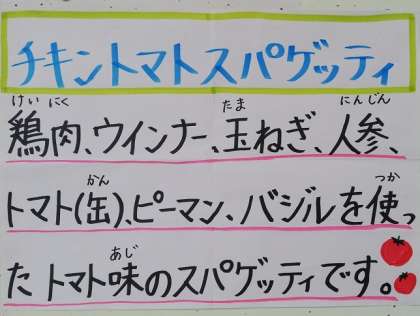 チキントマトスパゲッティ
けいにく たま にんじん
鶏肉、ウインナー、玉ねぎ、人参、
かん つか
トマト(缶)、ピーマン、バジルを使っ
あじ
たトマト味のスパゲッティです。